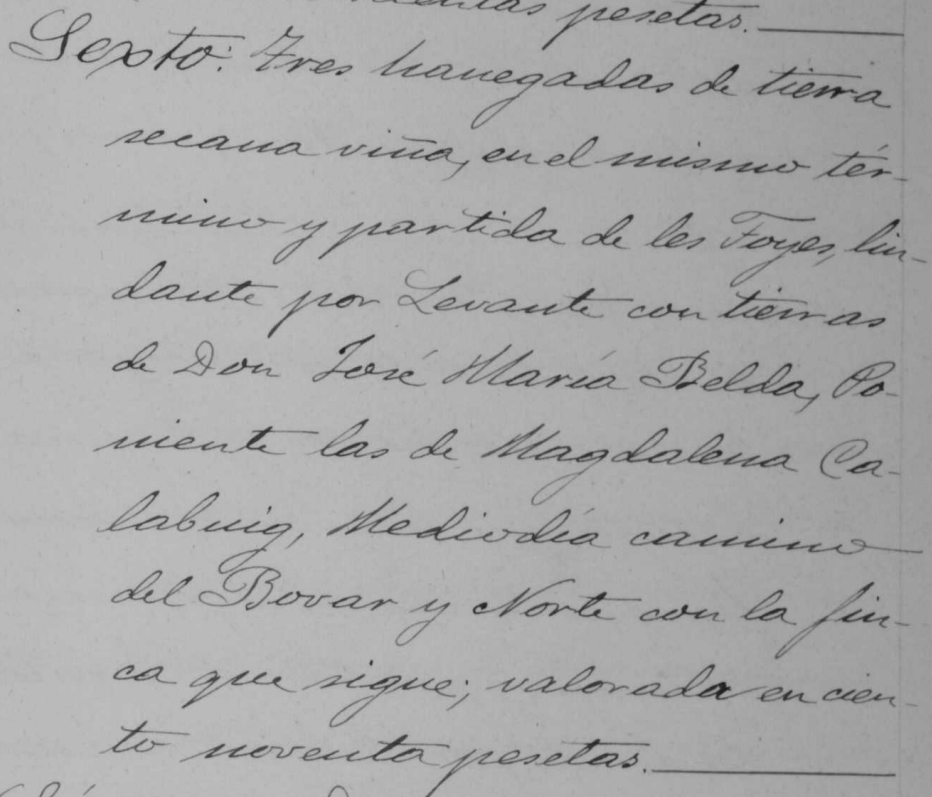 pesetas.
Sexto: Tres hanegadas de tierra
secana viña, en el mismo tér-
mino y partida de les Foyes, lin-
dante por Levante con tierras
de Don José María Belda, Po-
niente las de Magdalena Ca-
labuig, Mediodía camino
del Bovar y Norte con la fin-
ca que sigue; valorada en cien-
to noventa pesetas.